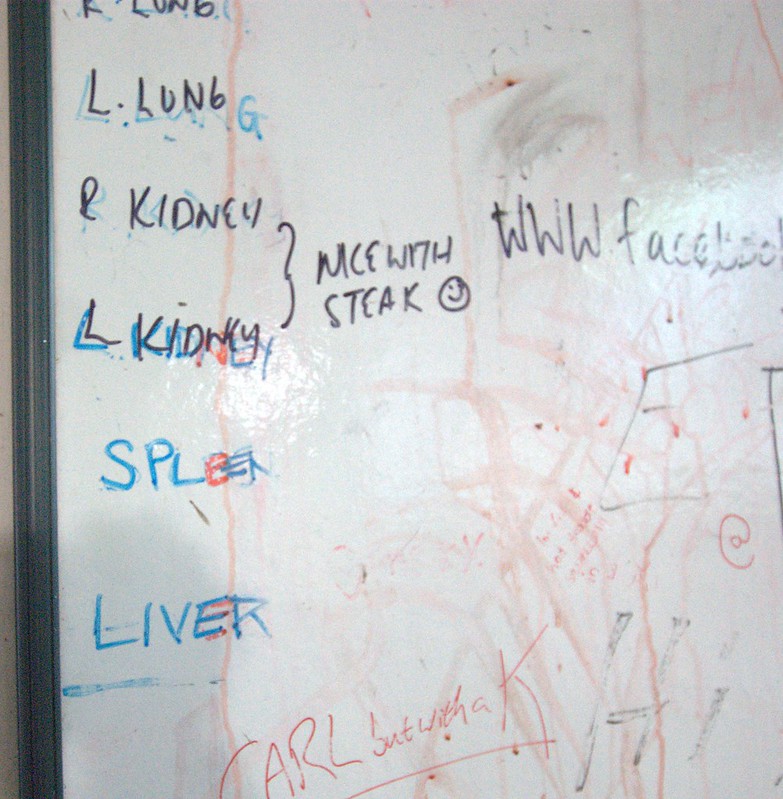 R LUNG
L. LUNG
R KIDNEY
L KIDNEY
NICE WITH
STEAK
www.facebook
SPLEEN
LIVER
@
Hi
CARL but with a K